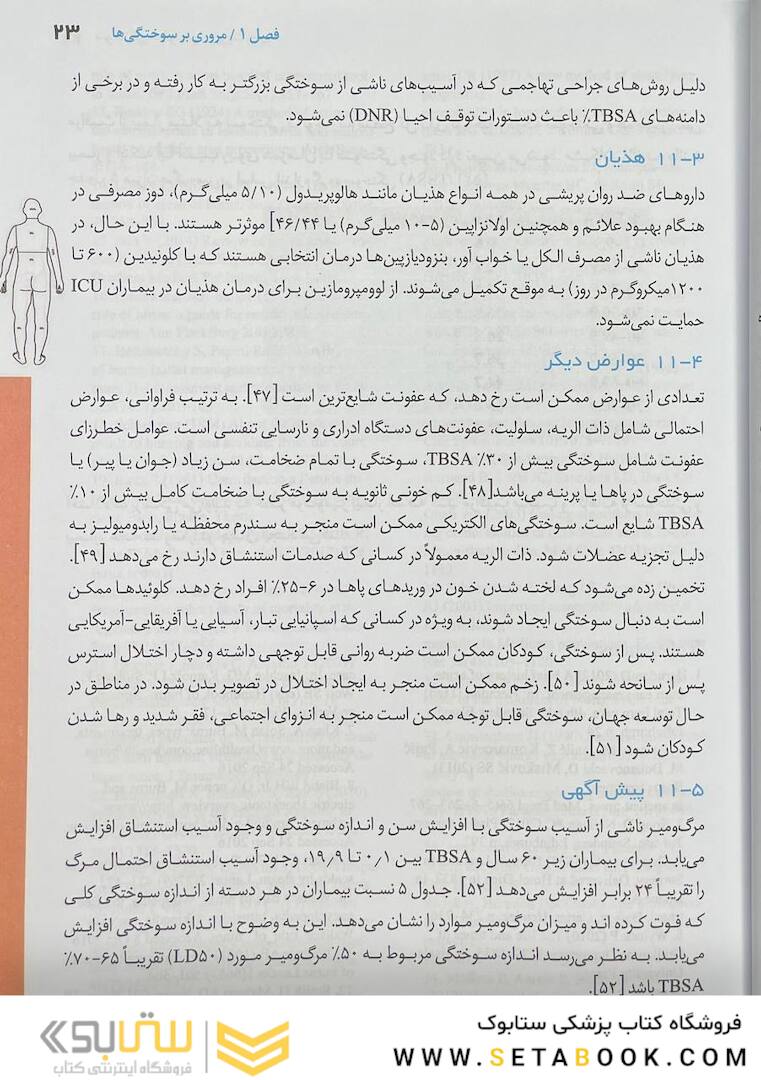 فصل ۱ / مروری بر سوختگی‌ها
۲۳
دلیل روش‌های جراحی تهاجمی که در آسیب‌های ناشی از سوختگی بزرگتر به کار رفته و در برخی از
دامنه‌های TBSA٪ باعث دستورات توقف احیا (DNR) نمی‌شود.
۱۱-۳ هذیان
داروهای ضد روان پریشی در همه انواع هذیان مانند هالوپریدول (۵/۱۰ میلی‌گرم)، دوز مصرفی در
هنگام بهبود علائم و همچنین اولانزاپین (۵-۱۰ میلی‌گرم) یا ۴۶/۴۴] موثرتر هستند. با این حال، در
هذیان ناشی از مصرف الکل یا خواب آور، بنزودیازپین‌ها درمان انتخابی هستند که با کلونیدین (۶۰۰ تا
۱۲۰۰میکروگرم در روز) به موقع تکمیل می‌شوند. از لوومپرومازین برای درمان هذیان در بیماران ICU
حمایت نمی‌شود.
۱۱-۴ عوارض دیگر
تعدادی از عوارض ممکن است رخ دهد، که عفونت شایع‌ترین است [۴۷]. به ترتیب فراوانی، عوارض
احتمالی شامل ذات الریه، سلولیت، عفونت‌های دستگاه ادراری و نارسایی تنفسی است. عوامل خطرزای
عفونت شامل سوختگی بیش از ۳۰٪ TBSA، سوختگی با تمام ضخامت، سن زیاد (جوان یا پیر) یا
سوختگی در پاها یا پرینه می‌باشد[۴۸]. کم خونی ثانویه به سوختگی با ضخامت کامل بیش از ۱۰٪
TBSA شایع است. سوختگی‌های الکتریکی ممکن است منجر به سندرم محفظه یا رابدومیولیز به
دلیل تجزیه عضلات شود. ذات الریه معمولاً در کسانی که صدمات استنشاق دارند رخ می‌دهد [۴۹].
تخمین زده می‌شود که لخته شدن خون در وریدهای پاها در ۶-۲۵٪ افراد رخ دهد. کلوئیدها ممکن
است به دنبال سوختگی ایجاد شوند، به ویژه در کسانی که اسپانیایی تبار، آسیایی یا آفریقایی-آمریکایی
هستند. پس از سوختگی، کودکان ممکن است ضربه روانی قابل توجهی داشته و دچار اختلال استرس
پس از سانحه شوند [۵۰]. زخم ممکن است منجر به ایجاد اختلال در تصویر بدن شود. در مناطق در
حال توسعه جهان، سوختگی قابل توجه ممکن است منجر به انزوای اجتماعی، فقر شدید و رها شدن
کودکان شود [۵۱].
۱۱-۵ پیش آگهی
مرگ‌ومیر ناشی از آسیب سوختگی با افزایش سن و اندازه سوختگی و وجود آسیب استنشاق افزایش
می‌یابد. برای بیماران زیر ۶۰ سال و TBSA بین ۰٫۱ تا ۱۹٫۹، وجود آسیب استنشاق احتمال مرگ
را تقریباً ۲۴ برابر افزایش می‌دهد [۵۲]. جدول ۵ نسبت بیماران در هر دسته از اندازه سوختگی کلی
که فوت کرده اند و میزان مرگ‌ومیر موارد را نشان می‌دهد. این به وضوح با اندازه سوختگی افزایش
می‌یابد. به نظر می‌رسد اندازه سوختگی مربوط به ۵۰٪ مرگ‌ومیر مورد (LD۵۰) تقریباً ۶۵-۷۰٪
TBSA باشد [۵۲].
فروشگاه کتاب پزشکی ستابوک
WWW.SETABOOK.COM
ستابوک
فروشگاه اینترنتی کتاب